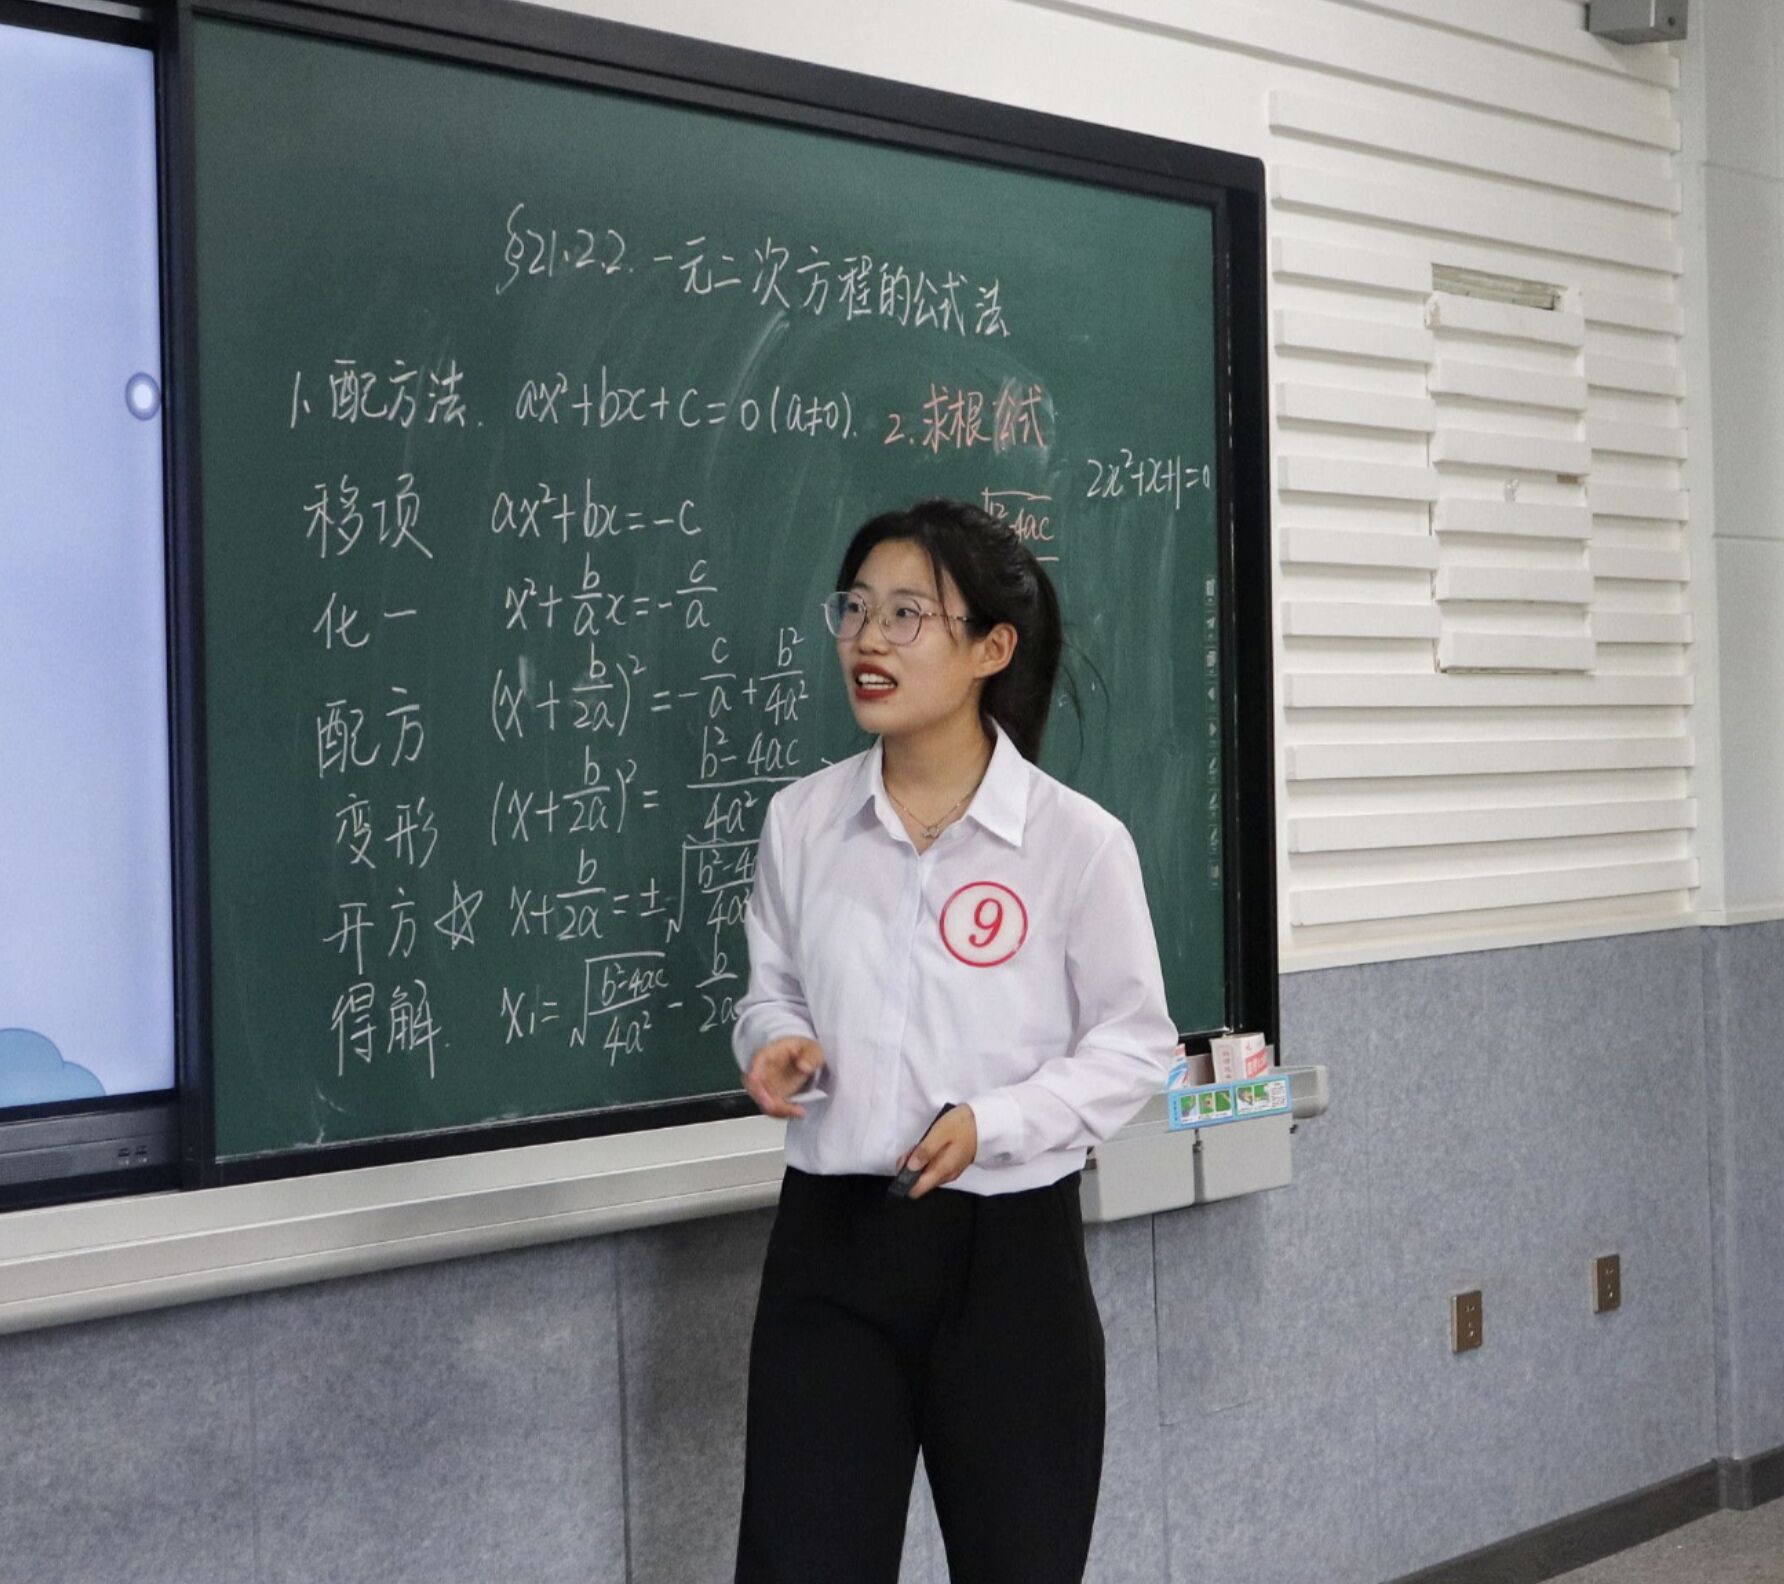 §21.2.2. 一元二次方程的公式法
1、配方法. ax²+bx+c=0(a≠0).
移项 ax²+bx=-c
化一 x²+b/a x=-c/a
配方 (x+b/2a)²=-c/a+b²/4a²
变形 (x+b/2a)²=b²-4ac/4a²
开方☆ x+b/2a=±√
得解. x₁=√b²-4ac/4a² - b/2a
2.求根公式
4ac
2x²+x+1=0
9